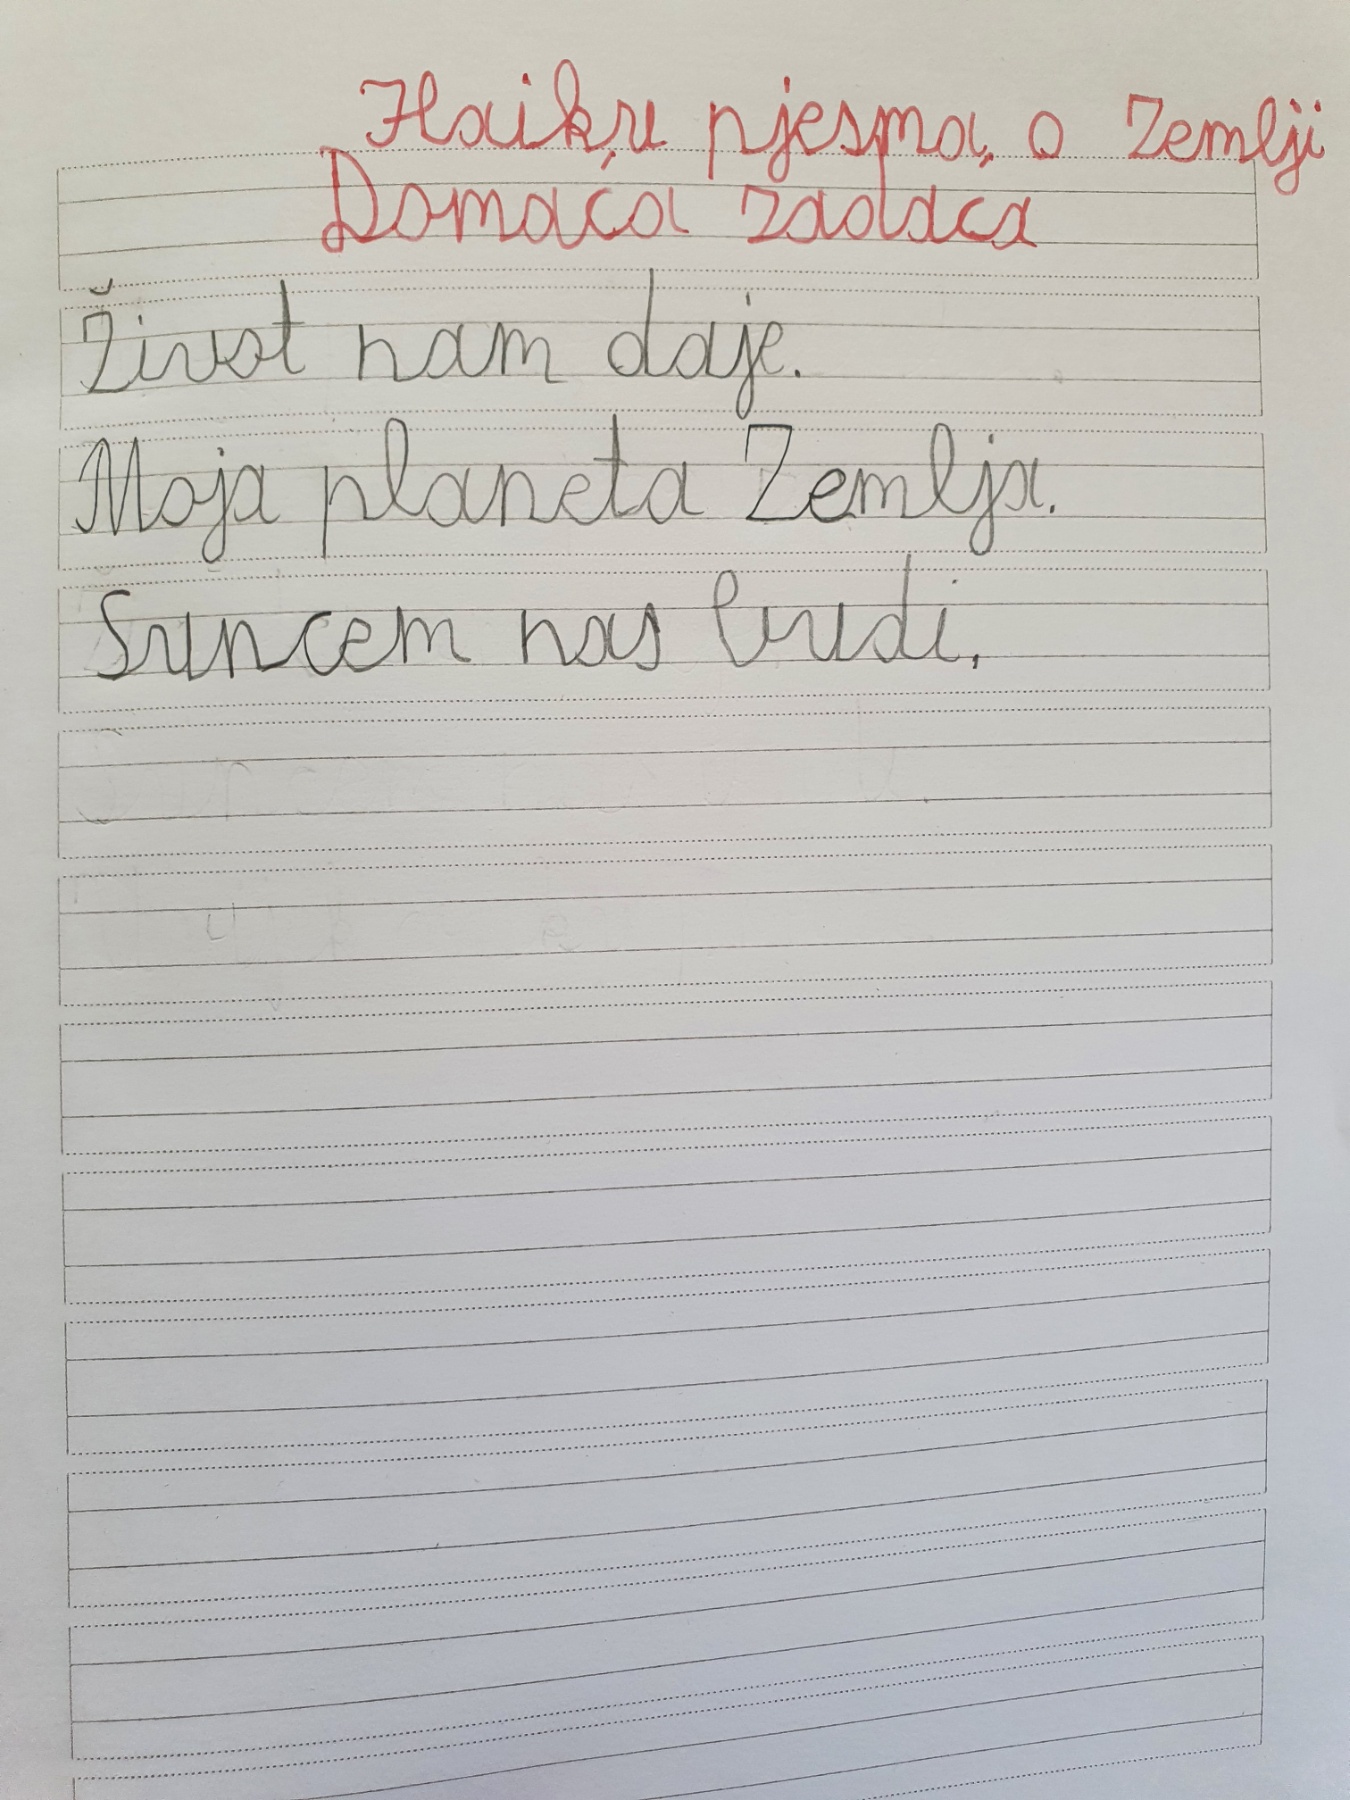 Haiku pjesma o Zemlji
Domaća zadaća
Život nam daje.
Moja planeta Zemlja.
Suncem nas budi.